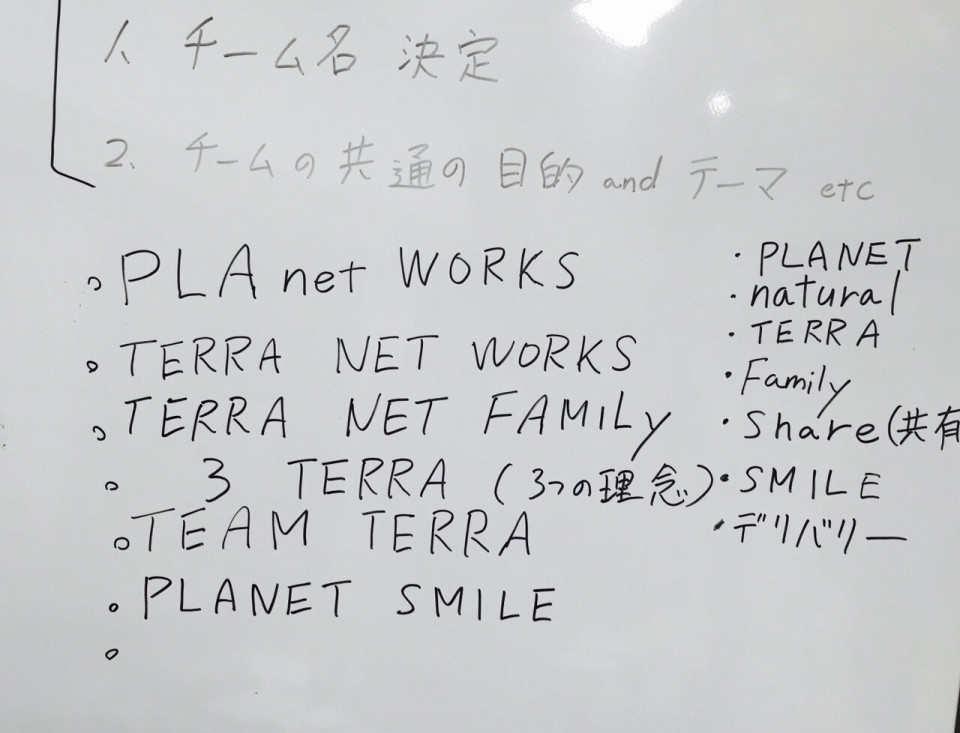 1、 チーム名 決定
2、 チームの共通の目的 and テーマ etc
。PLAnet WORKS
。TERRA NET WORKS
。TERRA NET FAMILy
。3 TERRA (3つの理念)
。TEAM TERRA
。PLANET SMILE
。
・PLANET
・natural
・TERRA
・Family
・Share(共有
・SMILE
・デリバリー